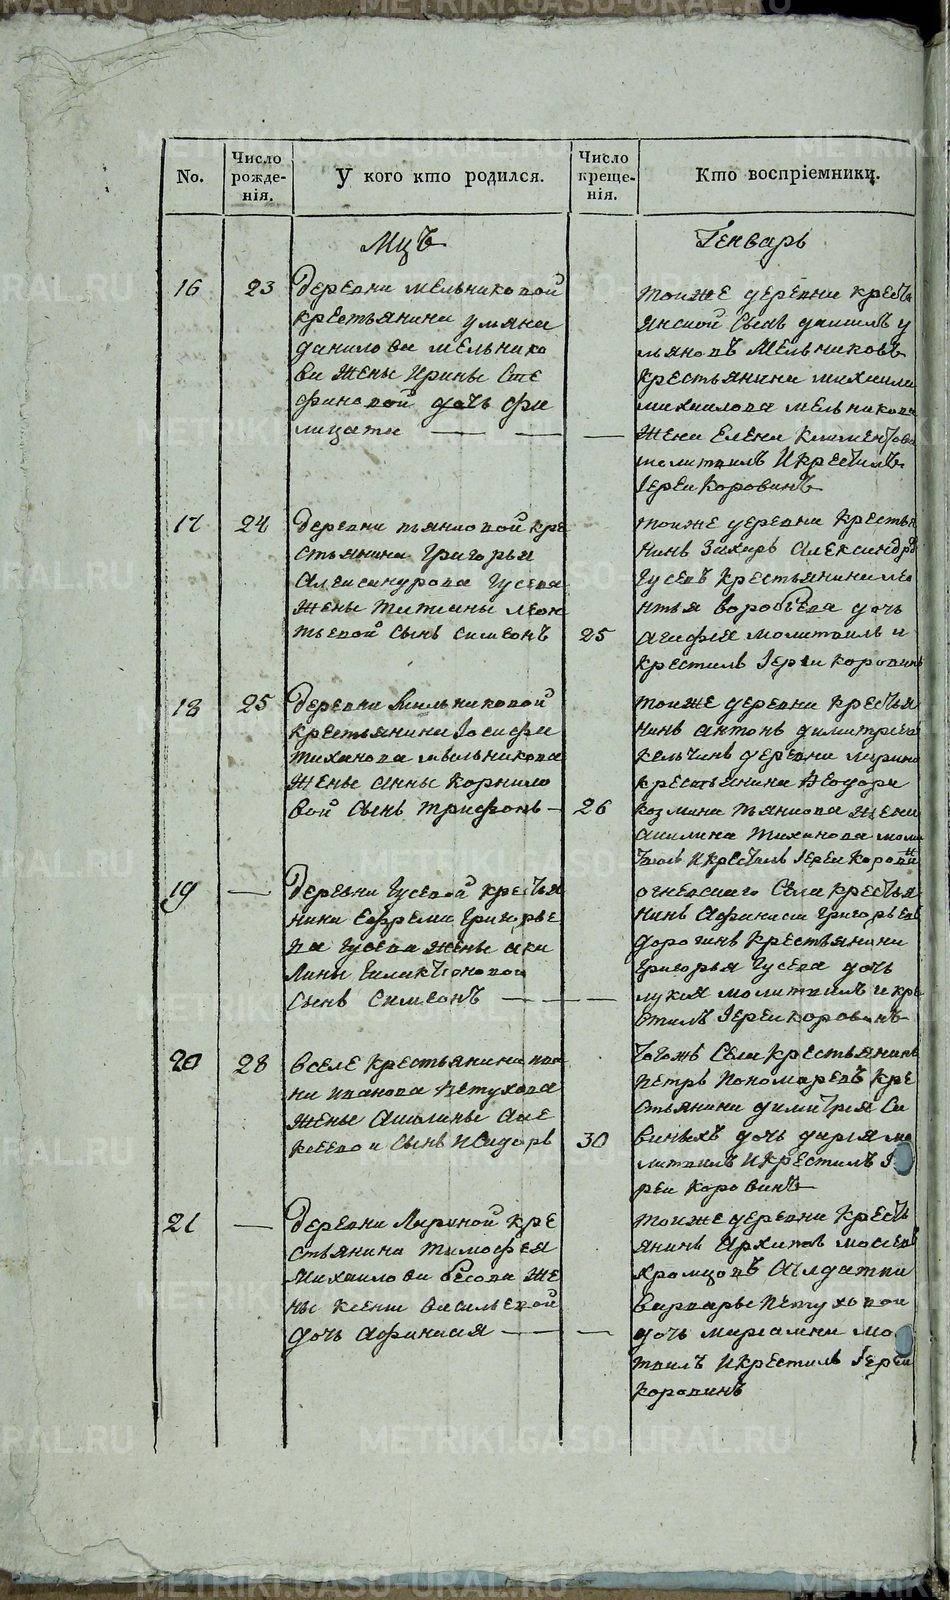 No.
Число рожде-нія.
У кого кто родился.
Число креще-нія.
Кто воспріемники.
Мцъ
Генварь
16
23
Деревни мельниковой
крестьянина ульяна
данилова мельнико
ва жены Ирины Сте
фановой дочь фе
лицата
тойже деревни кресть
янской сынъ даниилъ у
льяновъ Мельниковъ
крестьянина михаила
михаилова мельникова
жена Елена Климентова
молитвилъ И крестилъ
Іереи Коровинъ
17
24
Деревни пьянковой кре
стьянина Григорья
Александрова Гусева
жены татианы леон
тьевой сынъ симеонъ
25
тойже деревни крестья
нинъ Захаръ Александро
Гусевъ крестьянина ле
нтья воробьева дочь
агафия молитвилъ и
крестилъ Іереи коровинъ
18
25
Деревни Мельниковой
крестьянина Іосифа
тиханова мельникова
жены анны корнило
вой сынъ трифонъ
26
тойже деревни крестья
нинъ антонъ димитриевъ
деревни
крестьянина Феодора
козмина пьянкова жена
акилина тиханова моли
твилъ И крестилъ Іереи Корови
19
Деревни Гусевой крестья
нина Ефрема Григорье
ва Гусева жены аки
лины
сынъ Симеонъ
огневскаго села крестья
нинъ афанасии григорьевъ
дорогинъ крестьянина
григорья Гусева дочь
лукия молитвилъ и кре
стилъ Іереи коровинъ
20
28
Вселе крестьянина ива
на иванова петухова
жены акилины але
ксеевои сынъ Исидоръ
30
тогожъ села крестьянинъ
петръ пономаревъ кре
стьянина димитрия са
виныхъ дочь дария мо
литвилъ И крестилъ І
реи Коровинъ
21
Деревни Лариной кре
стьянина тимофея
михаилова бесова же
ны ксении васильевой
дочь афанасия
тойже деревни кресть
янинъ архипъ моисеевъ
храмцовъ салдатки
варвары петуховои
дочь мариамна мо
твилъ И крестилъ Іереи
коровинъ